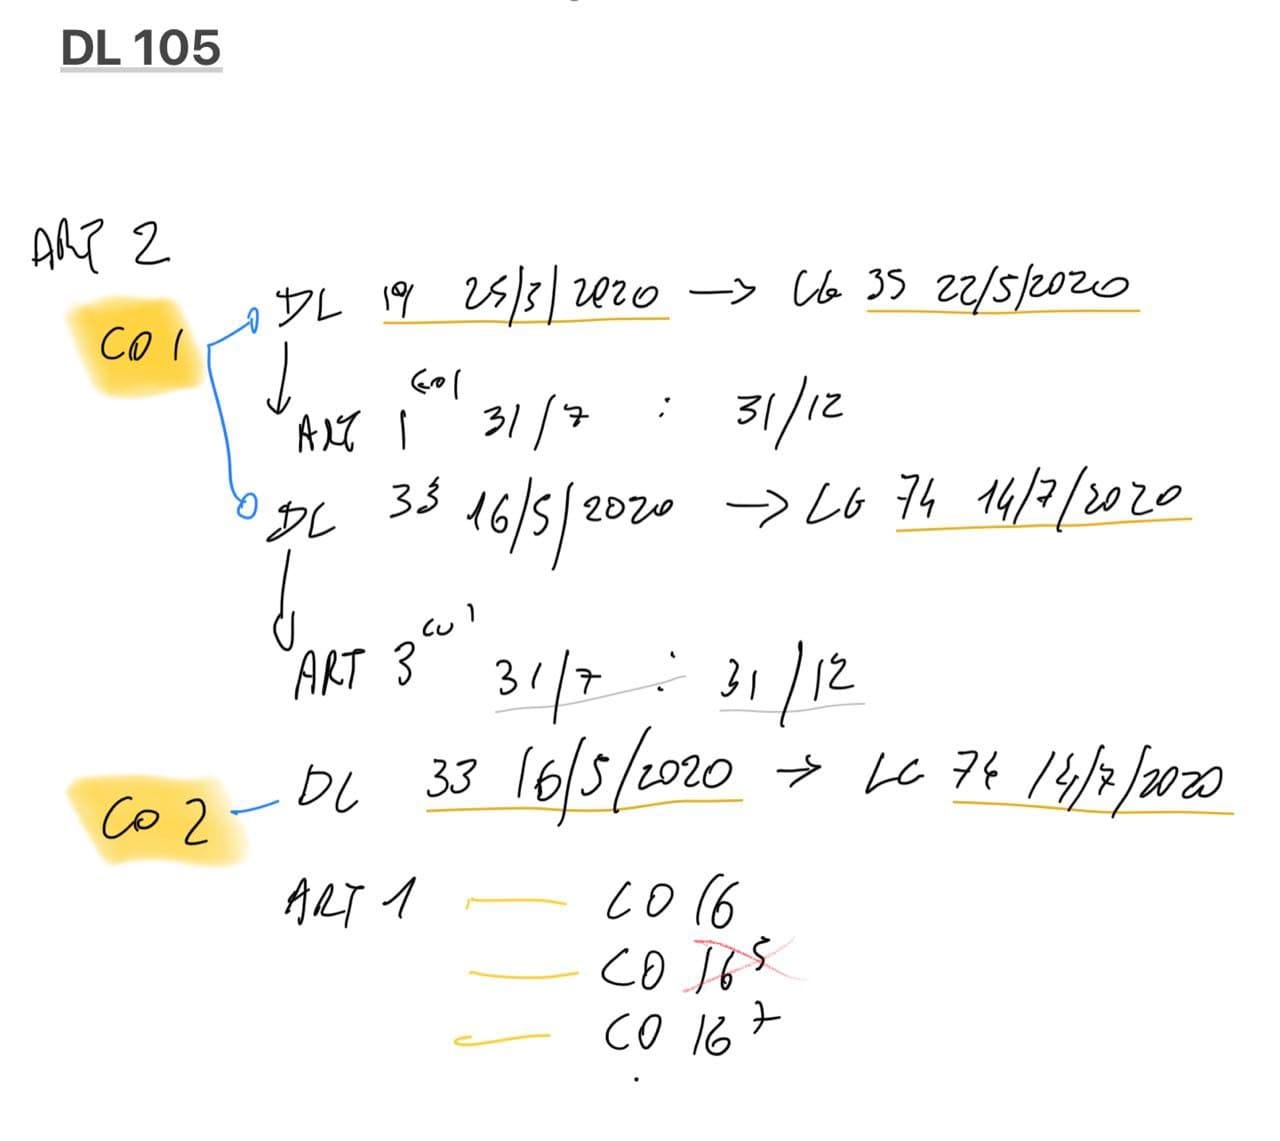 DL 105
ART 2
CO 1 DL 19 25/3/2020 → LG 35 22/5/2020
ART 1 CO1 31/7 : 31/12
DL 33 16/5/2020 → LG 74 14/7/2020
ART 3 CO 1 31/7 : 31/12
CO 2 DL 33 16/5/2020 → LG 74 14/7/2020
ART 1 CO 16
CO 16 5
CO 16 7